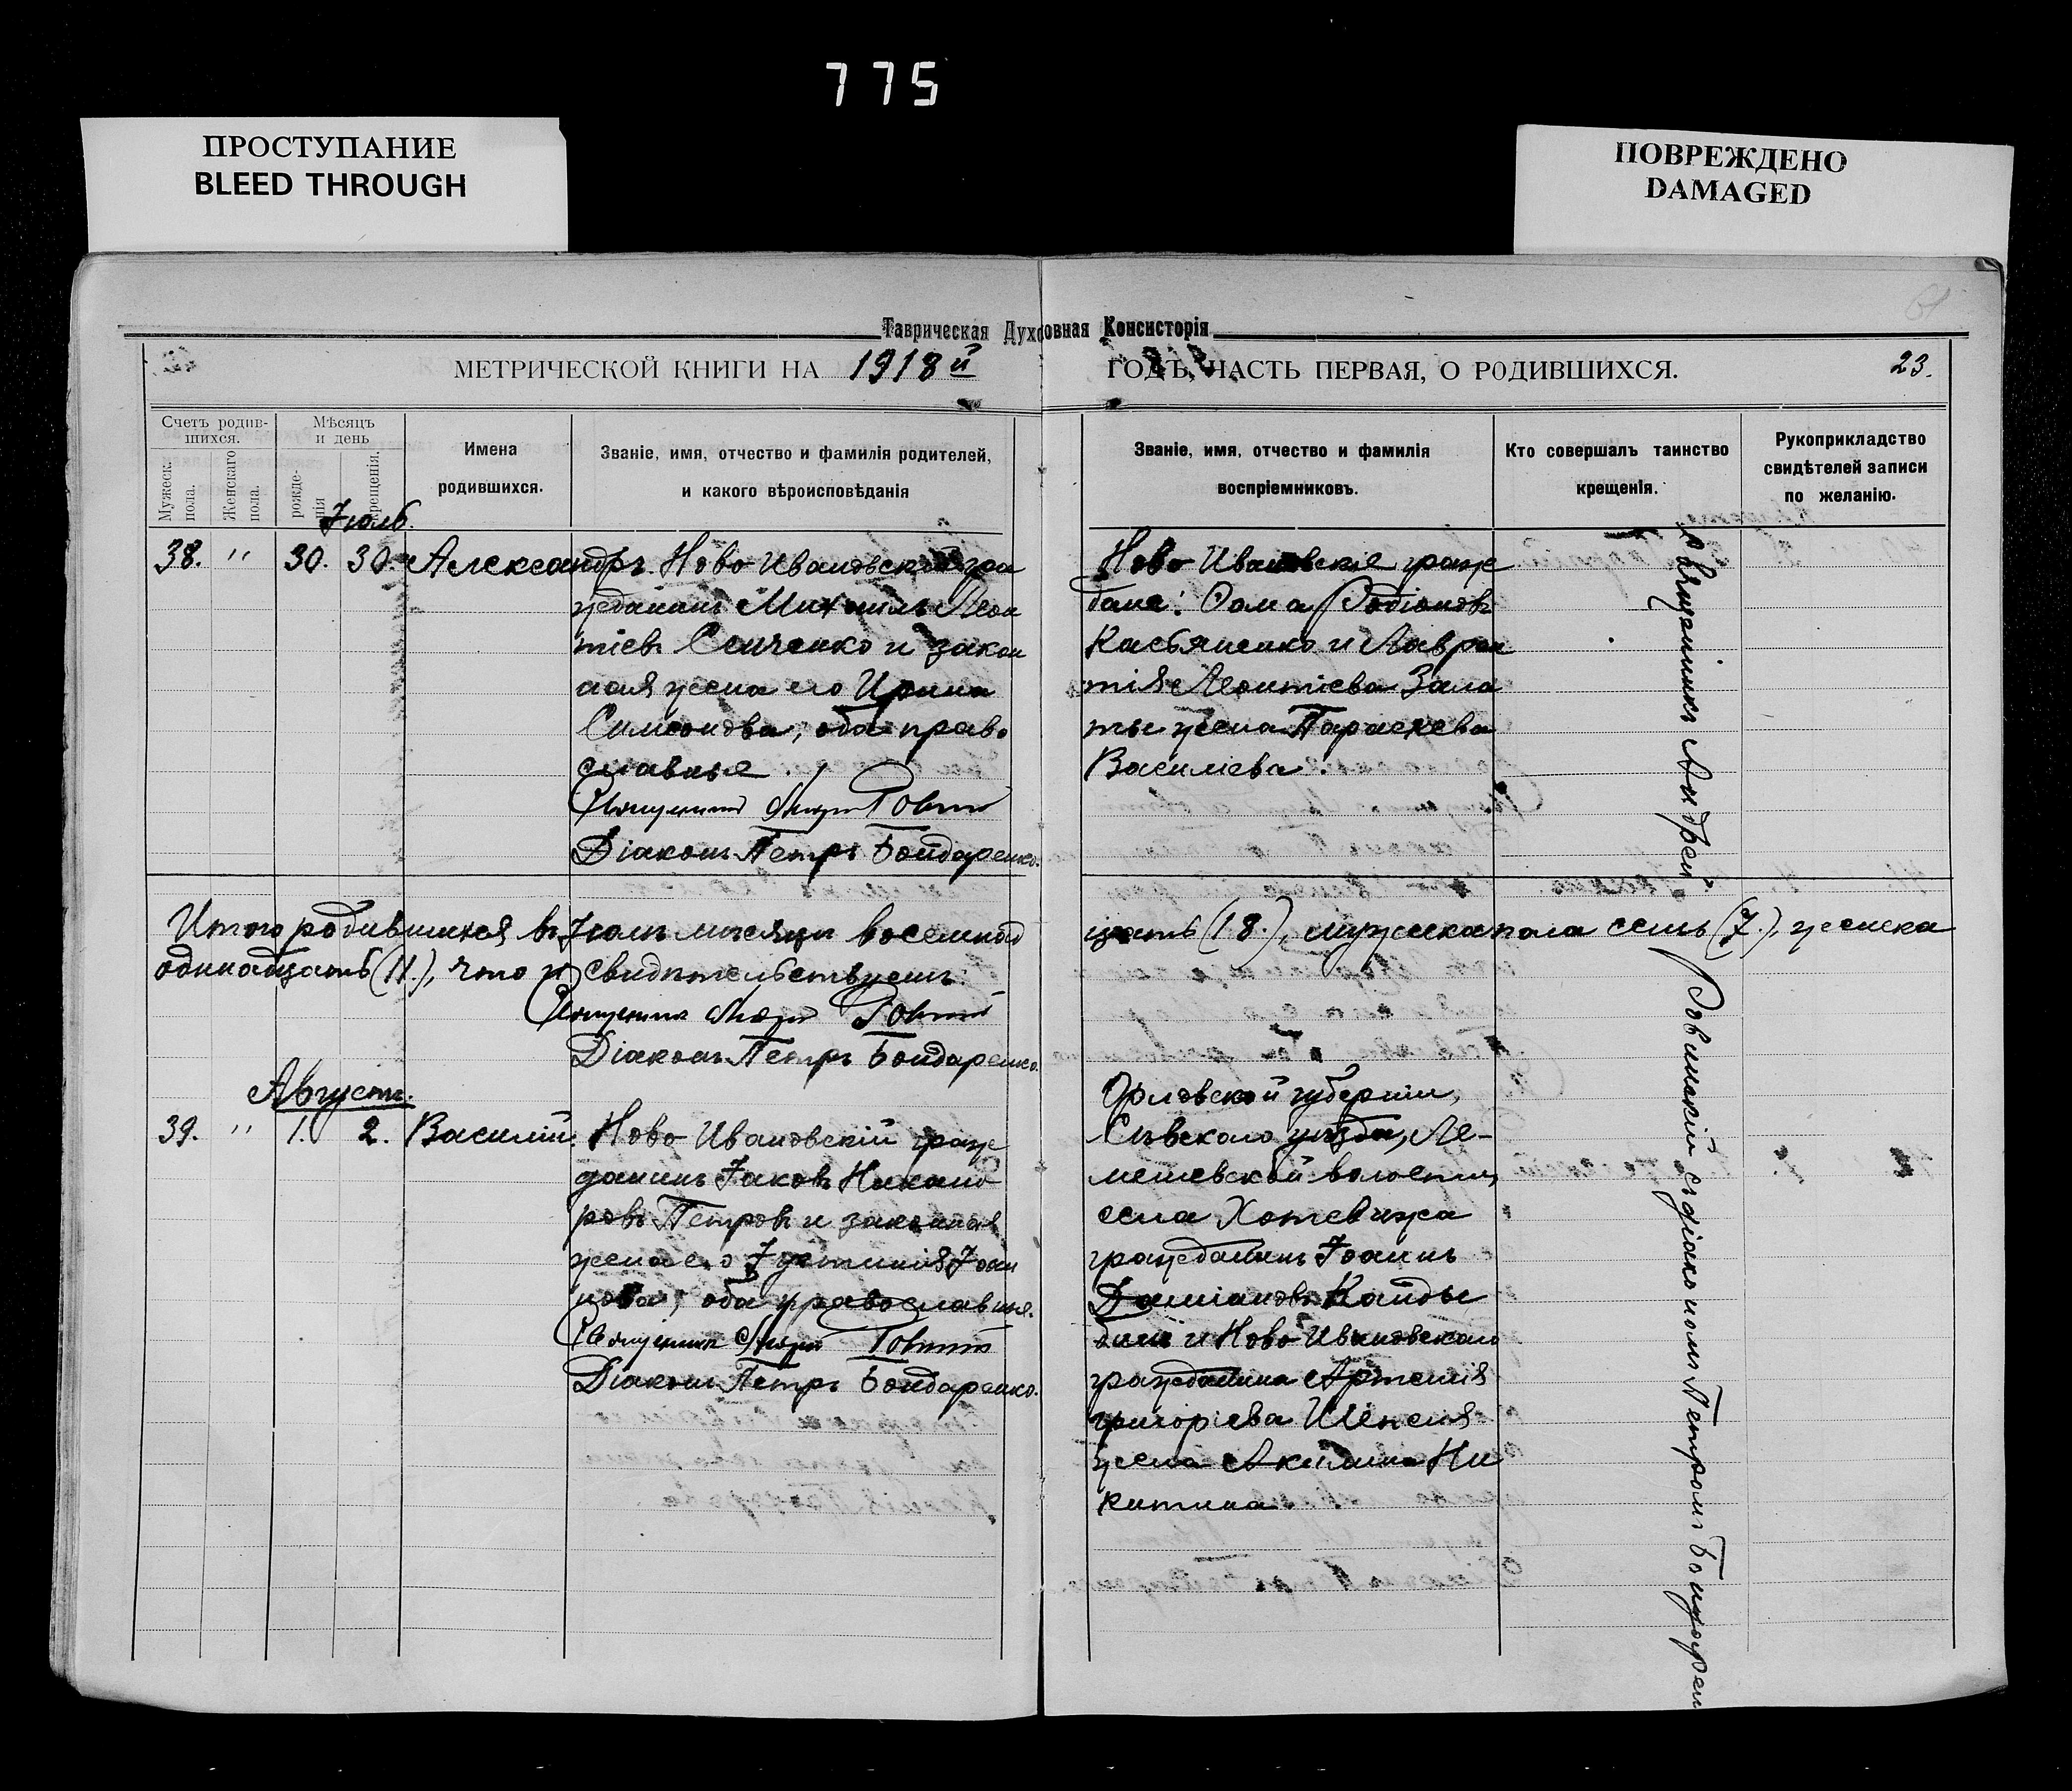 775
ПРОСТУПАНИЕ
BLEED THROUGH
ПОВРЕЖДЕНО
DAMAGED
Таврическая Духовная Консисторія
МЕТРИЧЕСКОЙ КНИГИ НА 1918й ГОДЪ, ЧАСТЬ ПЕРВАЯ, О РОДИВШИХСЯ.
23.
Счетъ родив-
шихся.
Мужеск.
пола.
Женскаго
пола.
Мѣсяцъ
и день
рожде-
нія
крещенія.
Имена
родившихся.
Званіе, имя, отчество и фамилія родителей,
и какого вѣроисповѣданія
Званіе, имя, отчество и фамилія
воспріемниковъ.
Кто совершалъ таинство
крещенія.
Рукоприкладство
свидѣтелей записи
по желанію.
Іюль.
38. " 30. 30. Александръ. Ново-Ивановскій гра
жданинъ Михаилъ Леон
тіевъ Сенченко и закон
ная жена его Ирина
Симеонова, оба право
славные.
Священникъ
Діаконъ Петръ Бондаренко.
Ново-Ивановскіе граж
дане: Родіоновъ
Касьяненко и Лаврен
тія Леонтіева Зала
ты жена Параскева
Василіева.
Итого родившихся въ Іюлѣ мѣсяцѣ восемнад
цать (18.), мужска пола семь (7.), женска
одинадцать (11.), что и свидѣтельствуемъ:
Священникъ
Діаконъ Петръ Бондаренко.
Августъ.
39. " 1. 2. Василій. Ново-Ивановскій граж
данинъ Іаковъ Никано
ровъ Петровъ и законная
жена его Іустинія Іоан
нова, оба православные.
Священникъ
Діаконъ Петръ Бондаренко.
Орловской губерніи,
Сѣвскаго уѣзда, Ле-
мешевской волости,
села Хотевижа
гражданинъ Іоаннъ
Даміановъ Кайды
бинъ и Ново-Ивановскаго
гражданина Артемія
Григоріева Шенеля
жена Акилина Ни
китина.
Священникъ Андрей
съ діакономъ Петромъ Бондарен